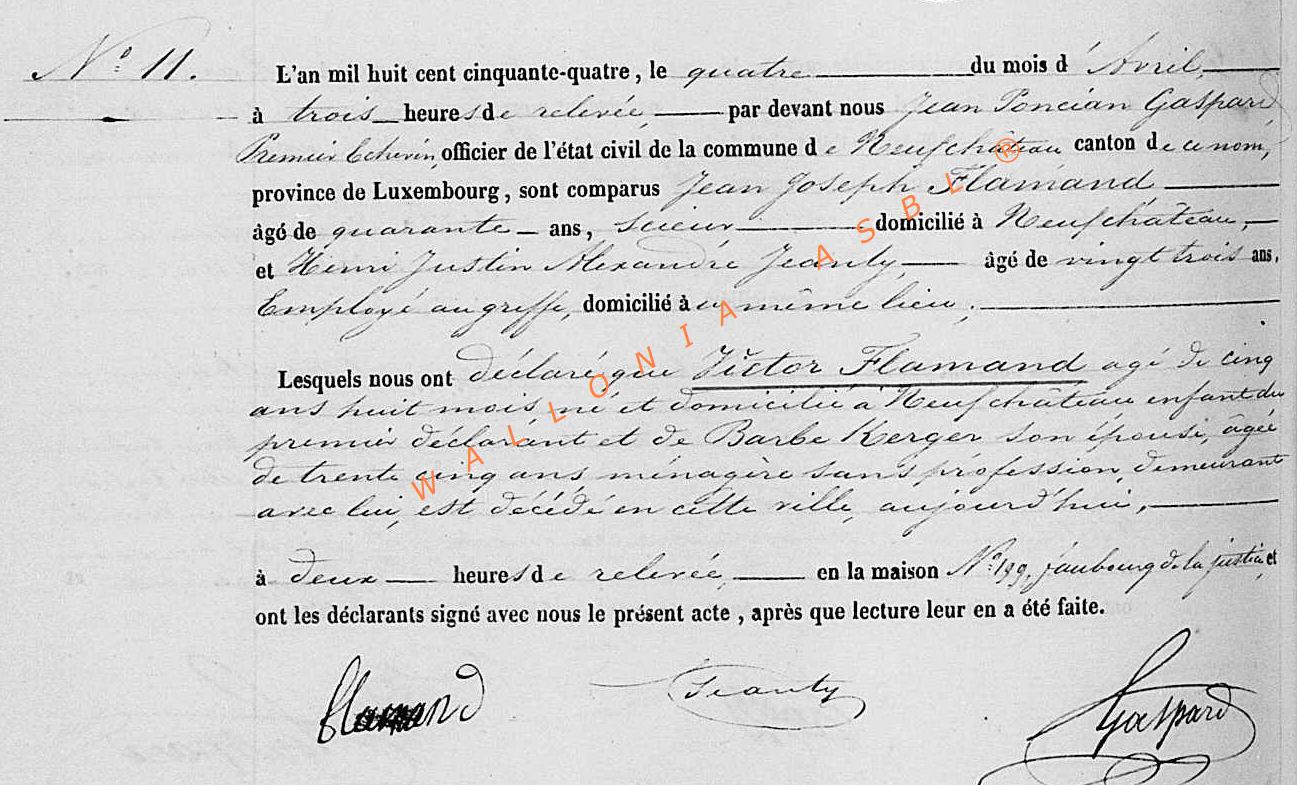 N° 11.
L'an mil huit cent cinquante-quatre, le quatre du mois d' Avril,
à trois heures de relevée, par devant nous Jean Poncian Gaspard
Premier Echevin, officier de l'état civil de la commune de Neufchâteau canton de ce nom,
province de Luxembourg, sont comparus Jean Joseph Flamand
âgé de quarante ans, scieur domicilié à Neufchâteau,
et Henri Justin Alexandre Jeanty, âgé de vingt trois ans,
Employé au greffe, domicilié à u même lieu,
Lesquels nous ont déclaré que Victor Flamand agé de cinq
ans huit mois né et domicilié à Neufchâteau enfant du
premier déclarant et de Barbe Kerger son épouse, âgée
de trente cinq ans ménagère sans profession, demeurant
avec lui, est décédé en cette ville, aujourd'hui,
à deux heures de relevée, en la maison N° 199, faubourg de la justice, et
ont les déclarants signé avec nous le présent acte, après que lecture leur en a été faite.
Flamand Jeanty Gaspard
WALLONIA ASBL ®